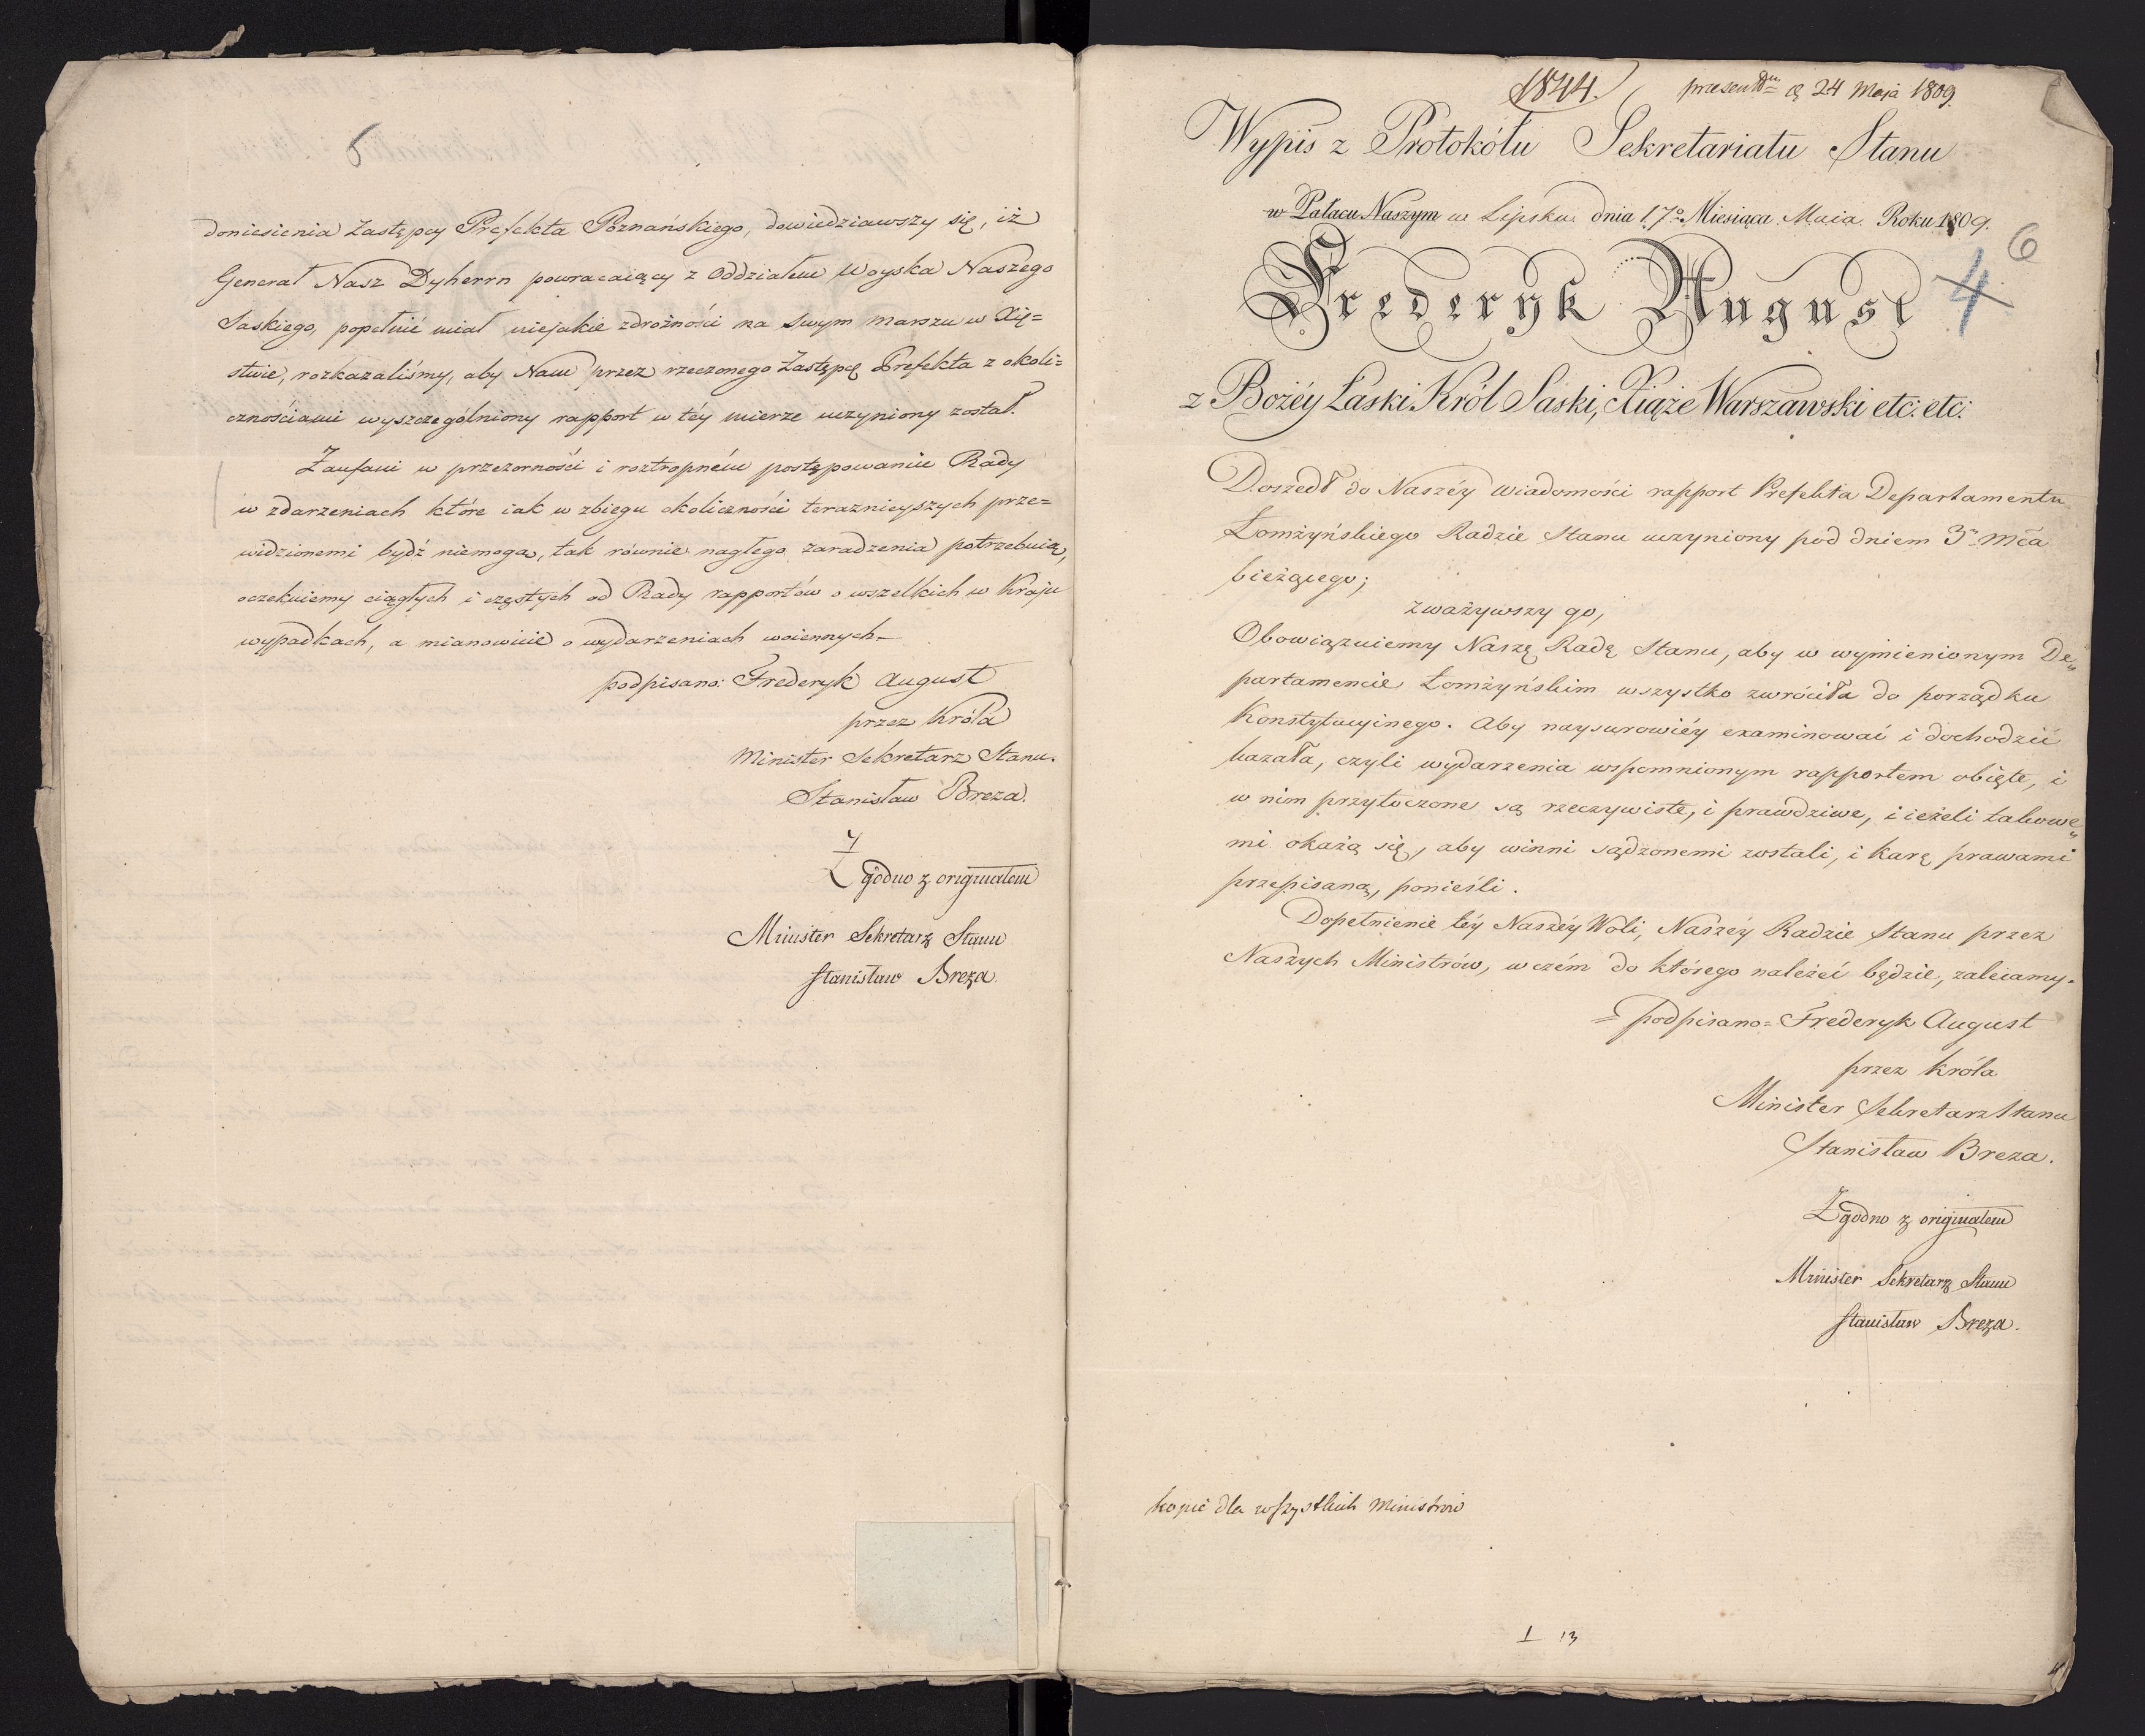 6
doniesienia Zastępcy Prefekta Poznańskiego, dowiedziawszy się, iż
Generał Nasz Dyherrn powracaiący z Oddziałem Woyska Naszego
Saskiego, popełnić miał niejakie zdrożności na swym marszu w Xię=
stwie, rozkazaliśmy, aby Nam przez rzeczonego Zastępcę Prefekta z okoli=
cznościami wyszczególniony rapport w téy mierze uczyniony został.
Zaufani w przezorności i roztropném postępowaniu Rady
w zdarzeniach które iak w zbiegu okoliczności teraznieyszych prze=
widzionemi bydź niemogą, tak równie nagłego zaradzenia potrzebuią,
oczekuiemy ciągłych i częstych od Rady rapportów o wszelkich w Kraju
wypadkach, a mianowicie o wydarzeniach woiennych.
podpisano: Frederyk August
przez Króla
Minister Sekretarz Stanu.
Stanisław Breza.
Zgodno z originałem
Minister Sekretarz Stanu
Stanisław Breza.
1844. presentm d 24 Maja 1809.
Wypis z Protokółu Sekretariatu Stanu
w Pałacu Naszym w Lipsku dnia 17o Miesiąca Maia Roku 1809.
6
Frederyk August 4
z Bożéy Łaski Król Saski, Xiąże Warszawski etc: etc:
Doszedł do Naszéy wiadomości rapport Prefekta Departamentu
Łomżyńskiego Radzie Stanu uczyniony pod dniem 3m Mca
bieżącego;
zważywszy go,
Obowiązuiemy Naszę Radę Stanu, aby w wymienionym De„
partamencie Łomżyńskim wszystko zwróciła do porządku
Konstytucyinego. Aby naysurowiéy examinować i dochodzić
kazała, czyli wydarzenia wspomnionym rapportem obięte, i
w nim przytoczone są rzeczywiste, i prawdziwe, i ieżeli takowe„
mi okażą się, aby winni sądzonemi zostali, i karę prawami
przepisaną, ponieśli.
Dopełnienie téy Naszéy Woli, Naszéy Radzie Stanu przez
Naszych Ministrów, w czém do którego należéć będzie, zalecamy.
= podpisano = Frederyk August
przez króla
Minister Sekretarz Stanu
Stanisław Breza.
Zgodno z originałem
Minister Sekretarz Stanu
Stanisław Breza.
kopie dla wszystkich Ministrów
1 13